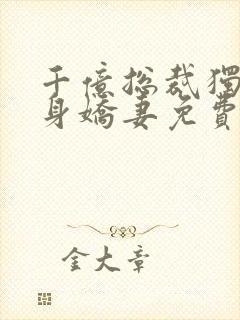 千億總裁獨
身嬌妻免費
金大章